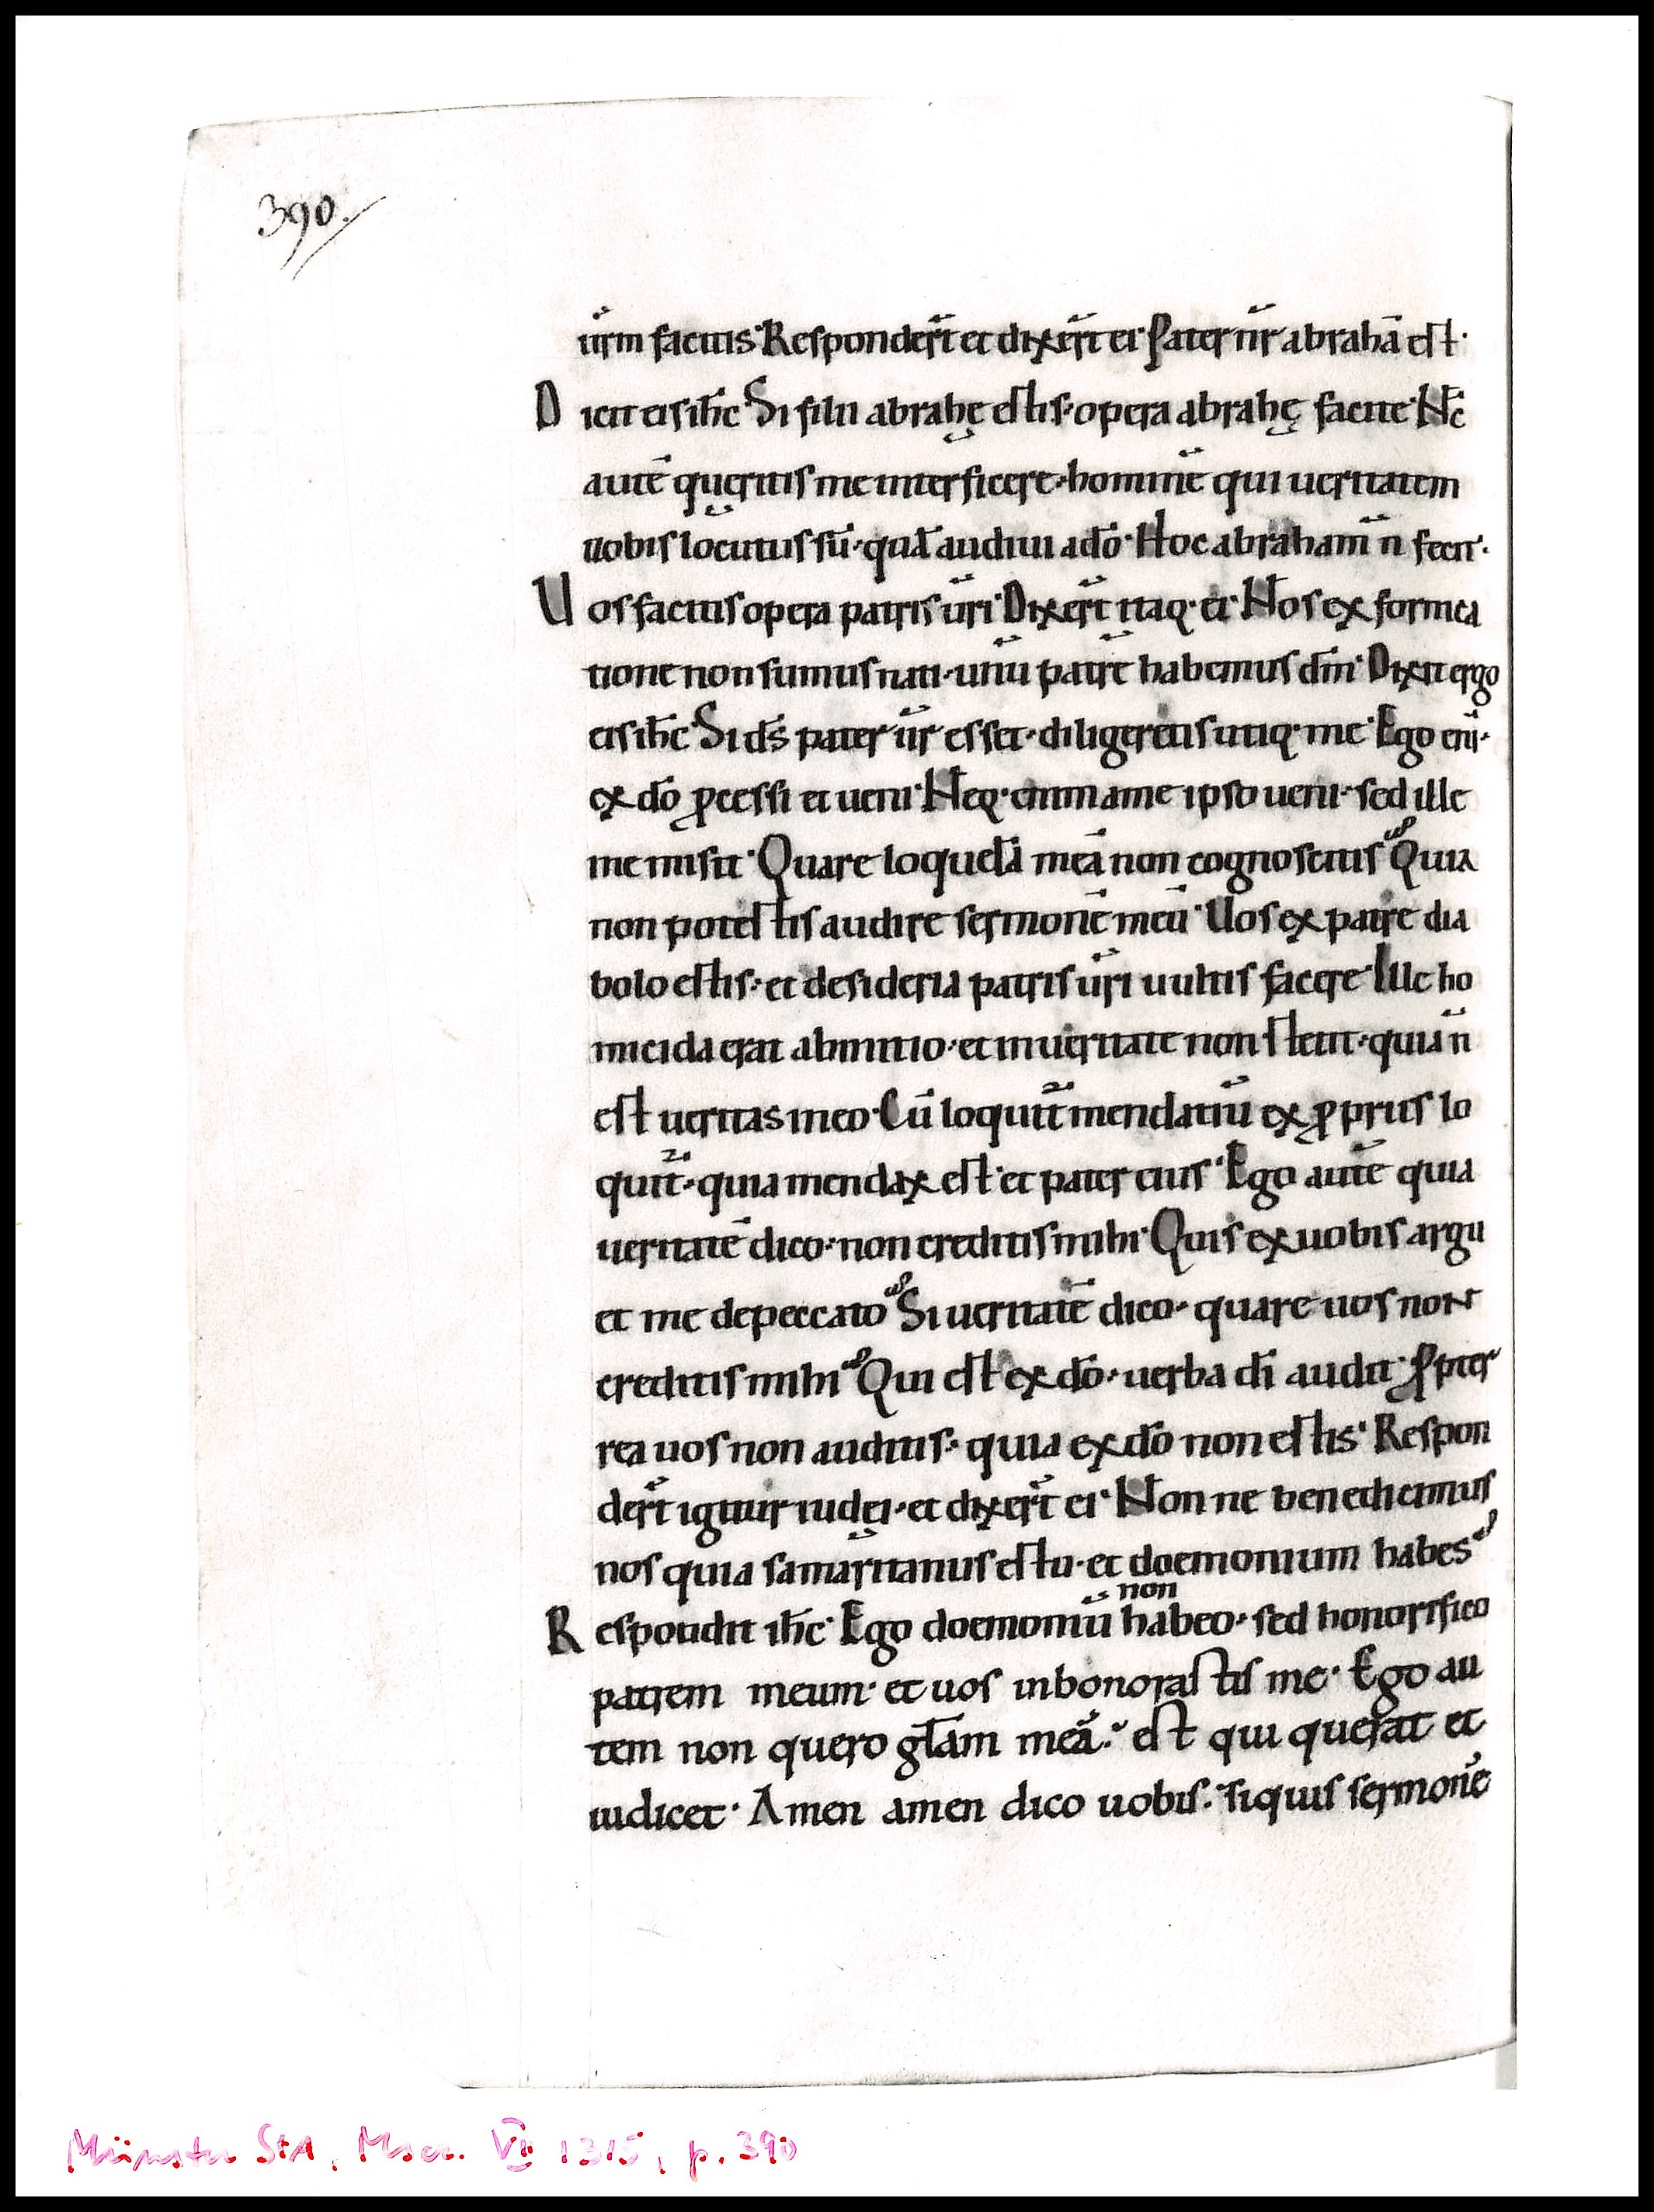 390.
ur̄m facitis. Respondert̄ et dixert̄ ei. Pater nr̄ abrahā est.
Dicit eis ih̄c. Si filii abrahę estis. opera abrahę facite. Nc̄
autē quęritis me interficere. hominē qui ueritatem
uobis locutus sū. quā audiui a dō. Hoc abraham n̄ fecit.
Uos facitis opera patris ur̄i. Dixert̄ itaq. ei. Nos ex fornica
tione non sumus nati. unū patrē habemus dm̄. Dixit ergo
eis ih̄c. Si ds̄ pater ur̄ esset. diligeretis utiq. me. Ego eni̅.
ex dō ꝓcessi et ueni. Neq. enim a me ipso ueni. sed ille
me misit. Quare loquelā meā non cognoscitis? Quia
non potestis audire sermonē meū. Uos ex patre dia
bolo estis. et desideria patris ur̄i uultis facere. Ille ho
micida erat ab initio. et in ueritate non stetit. quia n̄
est ueritas in eo. Cū loquit̄ mendatiū ex ꝓpriis lo
quit̄. quia mendax est. et pater eius. Ego autē quia
ueritatē dico. non creditis mihi. Quis ex uobis argu
et me de peccato? Si ueritatē dico. quare uos non
creditis mihi? Qui est ex dō. uerba dī audit. ꝓpter
rea uos non auditis. quia ex dō non estis. Respon
dert̄ igitur iudęi. et dixert̄ ei. Non ne bene dicimus
nos quia samaritanus es tu. et doemonium habes?
non
Respondit ih̄c. Ego doemoniū habeo. sed honorifico
patrem meum. et uos inhonorastis me. Ego au
tem non quero glām meā. est qui querat et
iudicet. Amen amen dico uobis. siquis sermonē
Münster StA, Mscr. VII 1315, p. 390